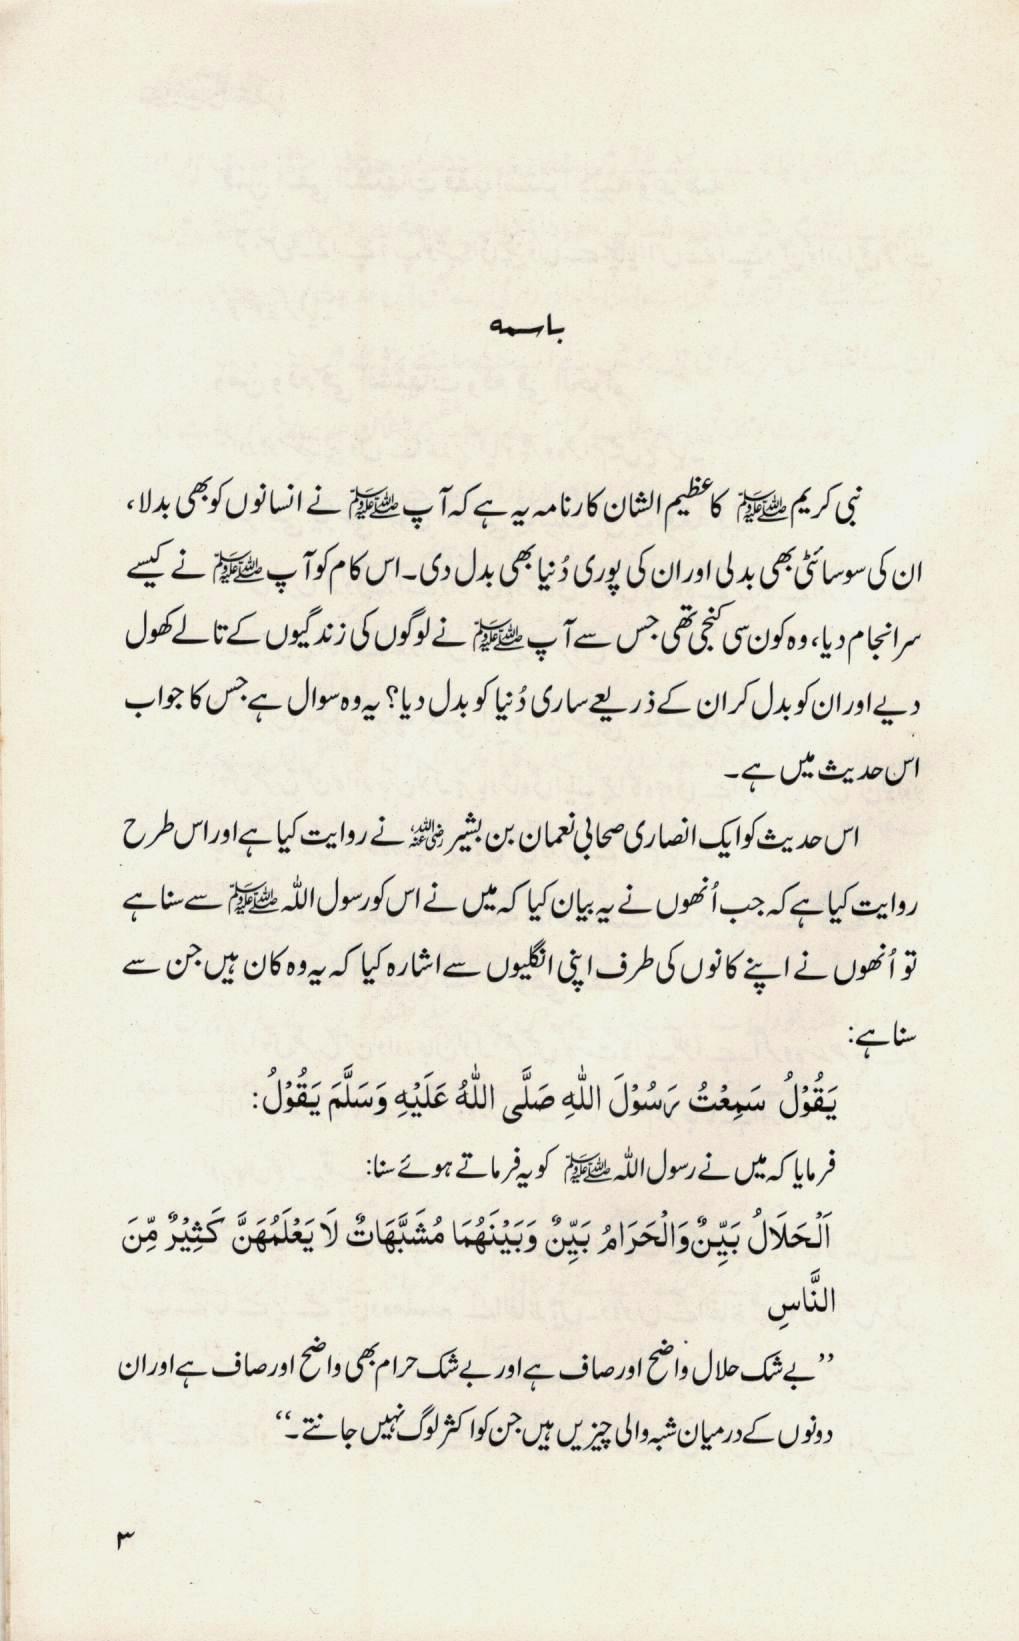 باسمہ
نبی کریم ﷺ کا عظیم الشان کارنامہ یہ ہے کہ آپ ﷺ نے انسانوں کو بھی بدلا،
ان کی سوسائٹی بھی بدلی اور ان کی پوری دُنیا بھی بدل دی۔ اس کام کو آپ ﷺ نے کیسے
سرانجام دیا، وہ کون سی کنجی تھی جس سے آپ ﷺ نے لوگوں کی زندگیوں کے تالے کھول
دیے اور ان کو بدل کر ان کے ذریعے ساری دُنیا کو بدل دیا؟ یہ وہ سوال ہے جس کا جواب
اس حدیث میں ہے۔
اس حدیث کو ایک انصاری صحابی نعمان بن بشیر رضی اللہ عنہ نے روایت کیا ہے اور اس طرح
روایت کیا ہے کہ جب اُنھوں نے یہ بیان کیا کہ میں نے اس کو رسول اللہ ﷺ سے سنا ہے
تو اُنھوں نے اپنے کانوں کی طرف اپنی انگلیوں سے اشارہ کیا کہ یہ وہ کان ہیں جن سے
سنا ہے:
يَقُوْلُ سَمِعْتُ رَسُوْلَ اللهِ صَلَّى اللهُ عَلَيْهِ وَسَلَّمَ يَقُوْلُ:
فرمایا کہ میں نے رسول اللہ ﷺ کو یہ فرماتے ہوئے سنا:
اَلْحَلَالُ بَيِّنٌ وَالْحَرَامُ بَيِّنٌ وَبَيْنَهُمَا مُشَبَّهَاتٌ لَا يَعْلَمُهَنَّ كَثِيْرٌ مِّنَ
النَّاسِ
’’بے شک حلال واضح اور صاف ہے اور بے شک حرام بھی واضح اور صاف ہے اور ان
دونوں کے درمیان شبہ والی چیزیں ہیں جن کو اکثر لوگ نہیں جانتے۔‘‘
۳